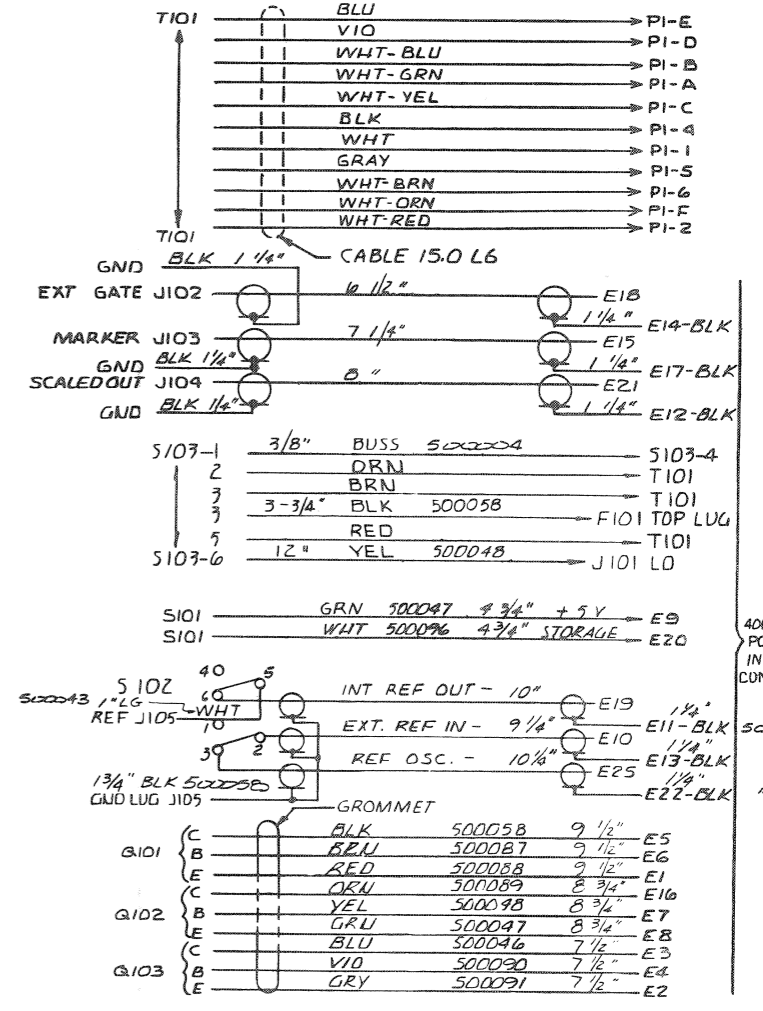 T101 BLU P1-E
VIO P1-D
WHT-BLU P1-B
WHT-GRN P1-A
WHT-YEL P1-C
BLK P1-4
WHT P1-1
GRAY P1-5
WHT-BRN P1-6
WHT-ORN P1-F
T101 WHT-RED P1-2
CABLE 15.0 LG
GND BLK 1 1/4"
EXT GATE J102 6 1/2" E18
1 1/4" E14-BLK
MARKER J103 7 1/4" E15
GND BLK 1 1/4" 1 1/4" E17-BLK
SCALED OUT J104 8" E21
GND BLK 1/4" 1 1/4" E12-BLK
S103-1 3/8" BUSS 500004 S103-4
2 ORN T101
3 BRN T101
3 3-3/4" BLK 500058 F101 TOP LUG
5 RED T101
S103-6 12" YEL 500048 J101 LO
S101 GRN 500047 4 3/4" +5V E9
S101 WHT 500096 4 3/4" STORAGE E20
40 5
S102 6 INT REF OUT - 10" E19
500043 1" LG 1 1/4"
REF J105 WHT E11-BLK
10 EXT. REF IN - 9 1/4" E10
3 2 1 1/4"
E13-BLK
REF OSC. - 10 1/4" E25
1 3/4" BLK 500058 1 1/4"
GND LUG J105 E22-BLK
GROMMET
Q101 C BLK 500058 9 1/2" E5
B BRN 500087 9 1/2" E6
E RED 500088 9 1/2" E1
Q102 C ORN 500089 8 3/4" E16
B YEL 500048 8 3/4" E7
E GRN 500047 8 3/4" E8
Q103 C BLU 500046 7 1/2" E3
B VIO 500090 7 1/2" E4
E GRY 500091 7 1/2" E2
IN